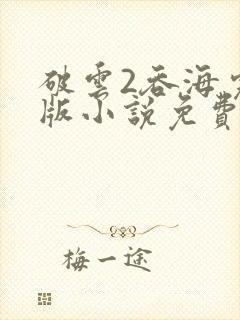 破雲2吞海
版小說免費
梅一途